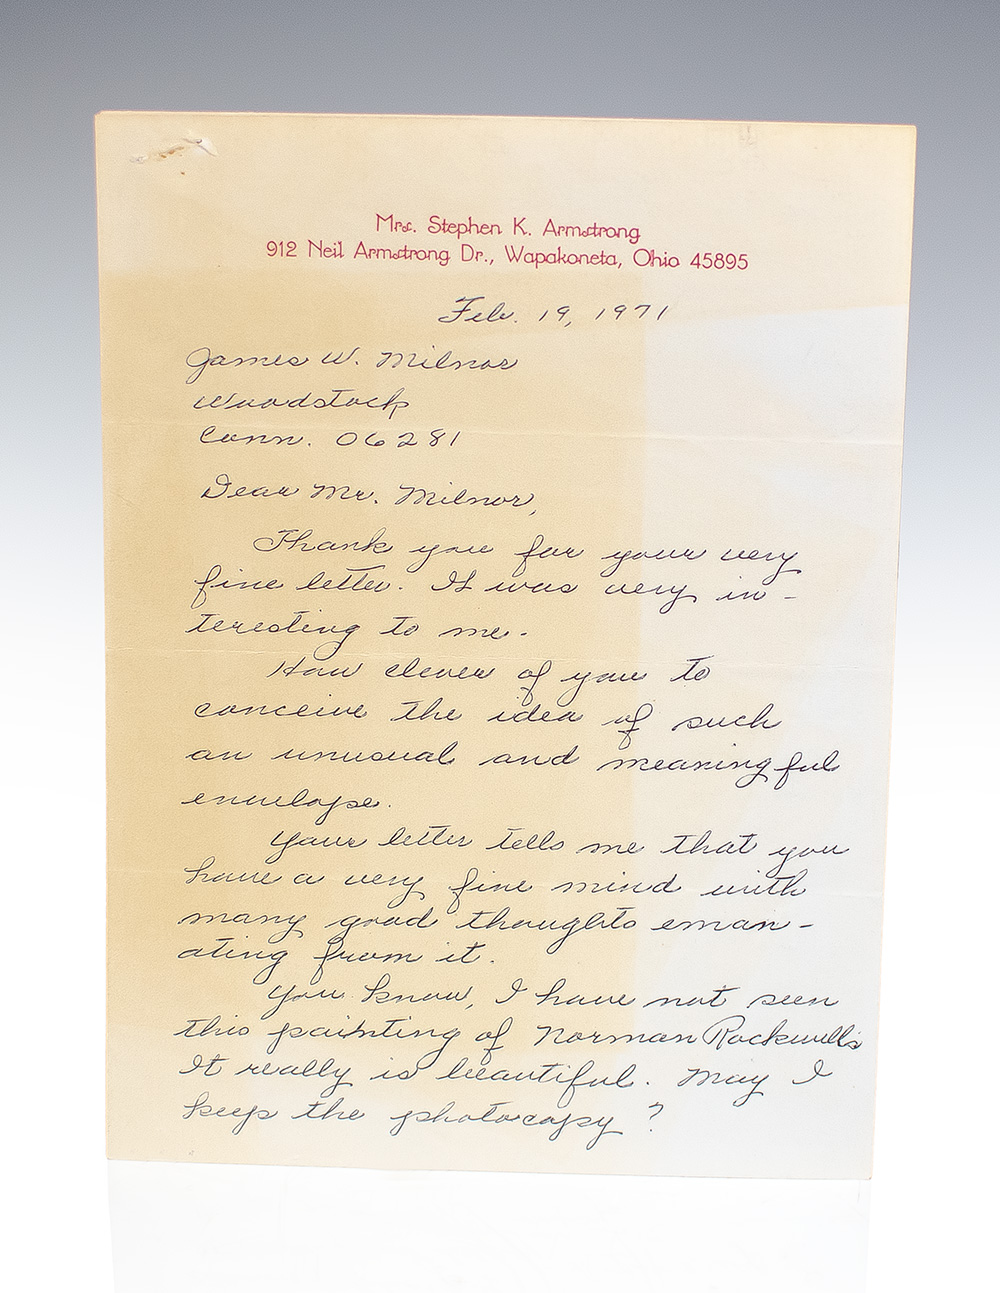 Mrs. Stephen K. Armstrong
912 Neil Armstrong Dr., Wapakoneta, Ohio 45895
Feb. 19, 1971
James W. Milnor
Woodstock
Conn. 06281
Dear Mr. Milnor,
Thank you for your very
fine letter. It was very in-
teresting to me.
How clever of you to
conceive the idea of such
an unusual and meaningful
envelope.
Your letter tells me that you
have a very fine mind with
many good thoughts eman-
ating from it.
You know, I have not seen
this painting of Norman Rockwell's
It really is beautiful. May I
keep the photocopy?